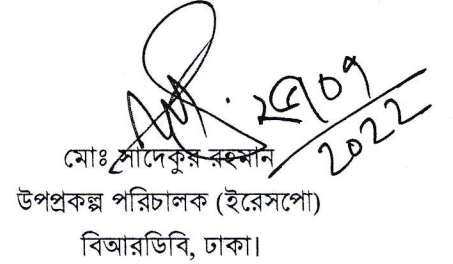 ২৫/০৭
2022
মোঃ সাদেকুর রহমান
উপপ্রকল্প পরিচালক (ইরেসপো)
বিআরডিবি, ঢাকা।